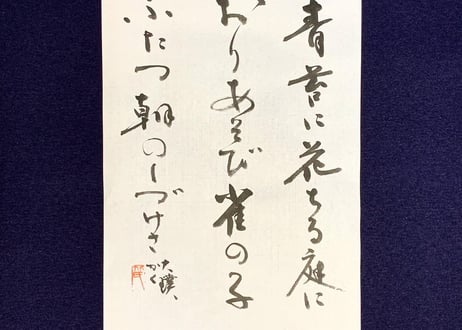 青苔に花ちる庭に
おりあそび雀の子
ふたつ朝のしづけさ
大璞
かく